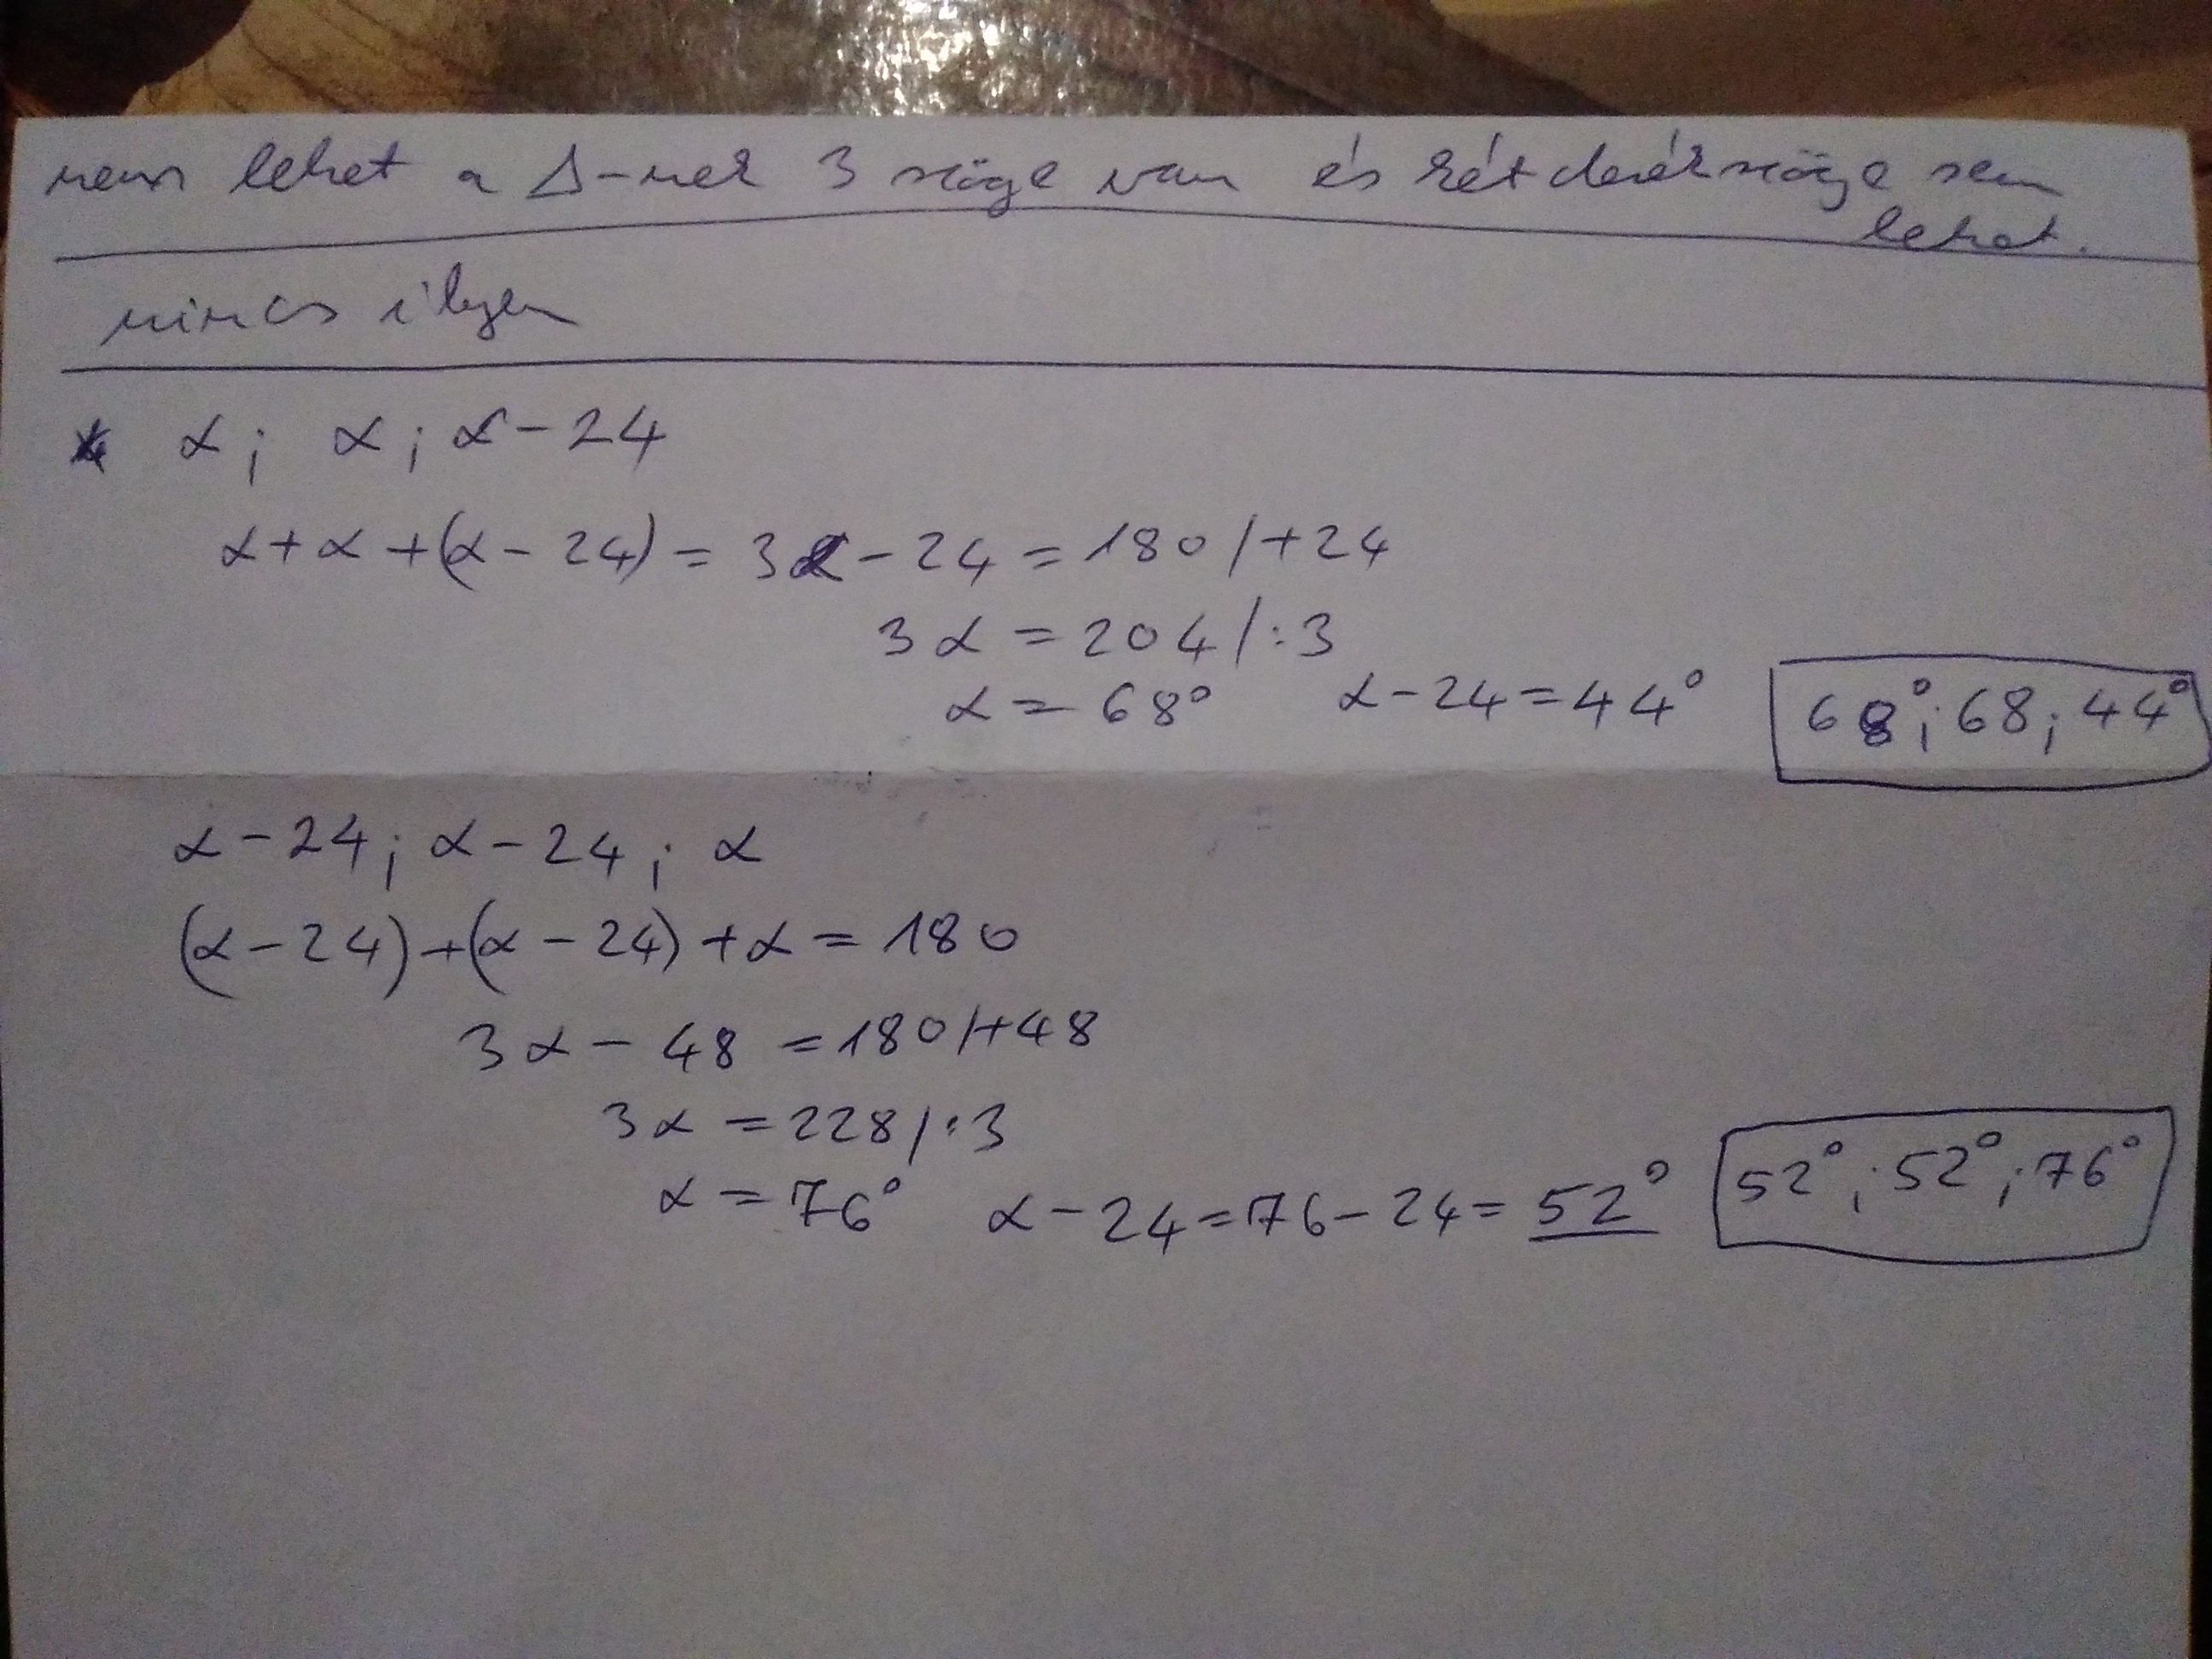 nem lehet a Δ-nek 3 szöge van és két derékszöge sem
lehet.
nincs ilyen
* α; α; α-24
α+α+(α-24) = 3α-24 = 180 /+24
3α = 204 /:3
α = 68° α-24=44° 68°; 68; 44°
α-24; α-24; α
(α-24)+(α-24)+α = 180
3α - 48 = 180 /+48
3α = 228 /:3
α = 76° α-24=76-24= 52° 52°; 52°; 76°